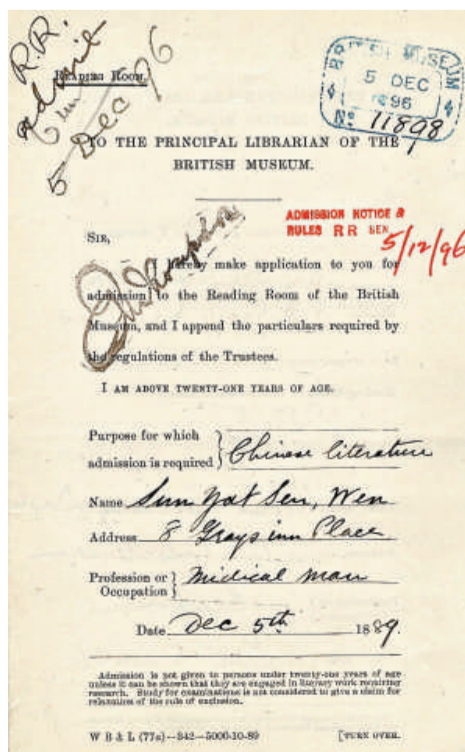 R.R.
admit
6 m
5 Dec 96
READING ROOM.
BRITISH MUSEUM
5 DEC
96
No 11898
TO THE PRINCIPAL LIBRARIAN OF THE
BRITISH MUSEUM.
ADMISSION NOTICE &
RULES RR SEN
5/12/96
SIR,
I hereby make application to you for
admission to the Reading Room of the British
Museum, and I append the particulars required by
the regulations of the Trustees.
I AM ABOVE TWENTY-ONE YEARS OF AGE.
Purpose for which
admission is required } Chinese literature
Name Sun Yat Sen, Wen
Address 8 Grays inn Place
Profession or
Occupation } Medical man
Date Dec 5th 1889.
Admission is not given to persons under twenty-one years of age
unless it can be shown that they are engaged in literary work requiring
research. Study for examinations is not considered to give a claim for
relaxation of the rule of exclusion.
W B & L (77s)—342—5000-10-89 [TURN OVER.